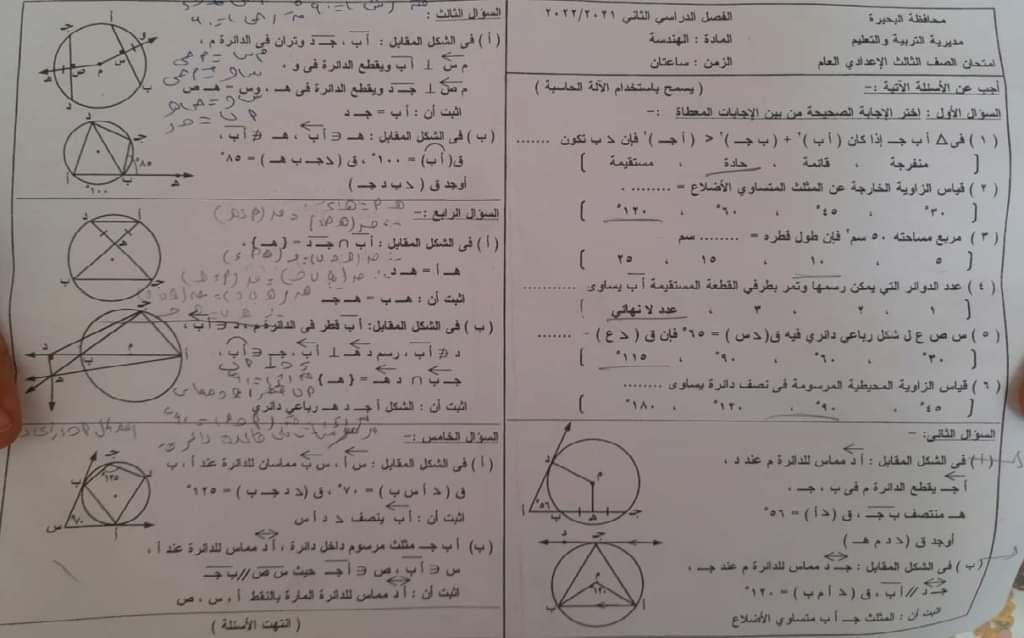 محافظة البحيرة
مديرية التربية والتعليم
امتحان الصف الثالث الإعدادي العام
الفصل الدراسي الثاني ٢٠٢٢/٢٠٢١
المادة : الهندسة
الزمن : ساعتان
أجب عن الأسئلة الآتية :- ( يسمح باستخدام الآلة الحاسبة )
السؤال الأول : إختر الإجابة الصحيحة من بين الإجابات المعطاة :-
( ١ ) فى Δ أ ب جـ إذا كان ( أ ب )٢ + ( ب جـ )٢ > ( أ جـ )٢ فإن د ب تكون .......
( منفرجة ، قائمة ، حادة ، مستقيمة )
( ٢ ) قياس الزاوية الخارجة عن المثلث المتساوي الأضلاع = ........ .
( ٣٠° ، ٤٥° ، ٦٠° ، ١٢٠° )
( ٣ ) مربع مساحته ٥٠ سم٢ فإن طول قطره = ........ سم
( ٥ ، ١٠ ، ١٥ ، ٢٥ )
( ٤ ) عدد الدوائر التي يمكن رسمها وتمر بطرفي القطعة المستقيمة أ ب يساوى ..........
( ١ ، ٢ ، ٣ ، عدد لا نهائي )
( ٥ ) س ص ع ل شكل رباعي دائري فيه ق( د س ) = ٦٥° فإن ق ( د ع ) = ........
( ٣٠° ، ٦٠° ، ٩٠° ، ١١٥° )
( ٦ ) قياس الزاوية المحيطية المرسومة فى نصف دائرة يساوى ........
( ٤٥° ، ٩٠° ، ١٢٠° ، ١٨٠° )
السؤال الثانى: -
( أ ) فى الشكل المقابل : أ د مماس للدائرة م عند د ،
أ جـ يقطع الدائرة م فى ب ، جـ ،
هـ منتصف ب جـ ، ق ( د أ ) = ٥٦°
أوجد ق ( د د م هـ )
د
م
٥٦°
أ
ب
هـ
جـ
( ب ) فى الشكل المقابل : جـ د مماس للدائرة م عند جـ ،
جـ د // أ ب ، ق ( د أ م ب ) = ١٢٠°
اثبت أن : المثلث جـ أ ب متساوي الأضلاع
د
جـ
م
١٢٠°
ب
أ
السؤال الثالث :
( أ ) فى الشكل المقابل : أ ب ، جـ د وتران فى الدائرة م ،
م س ⊥ أ ب ويقطع الدائرة فى و ،
م ص ⊥ جـ د ويقطع الدائرة فى هـ ، وس = هـ ص
اثبت أن : أ ب = جـ د
جـ
و
س
م
ص
هـ
ب
د
( ب ) فى الشكل المقابل : هـ ∈ أ ب ، هـ ∉ أ ب ،
ق( أ ب ) = ١٠٠° ، ق ( د جـ ب هـ ) = ٨٥°
أوجد ق ( د ب د جـ )
د
جـ
٨٥°
أ
١٠٠°
ب
هـ
السؤال الرابع :-
( أ ) فى الشكل المقابل : أ ب ∩ جـ د = { هـ } ،
هـ أ = هـ د
اثبت أن : هـ ب = هـ جـ
د
أ
هـ
ب
جـ
( ب ) فى الشكل المقابل: أ ب قطر فى الدائرة م ، د ∈ أ ب ،
د ∉ أ ب ، رسم د هـ ⊥ أ ب ، جـ ∈ أ ب ،
جـ ب ∩ د هـ = { هـ }
اثبت أن : الشكل أ جـ د هـ رباعي دائري
جـ
د
ب
م
أ
هـ
السؤال الخامس :-
( أ ) فى الشكل المقابل : س أ ، س ب مماسان للدائرة عند أ ، ب
ق ( د أ س ب ) = ٧٠° ، ق ( د د جـ ب ) = ١٢٥°
اثبت أن : أ ب ينصف د د أ س
جـ
د
١٢٥°
ب
٧٠°
س
أ
( ب ) أ ب جـ مثلث مرسوم داخل دائرة ، أ د مماس للدائرة عند أ ،
س ∈ أ ب ، ص ∈ أ جـ حيث س ص // ب جـ
اثبت أن : أ د مماس للدائرة المارة بالنقط أ ، س ، ص
( انتهت الأسئلة )